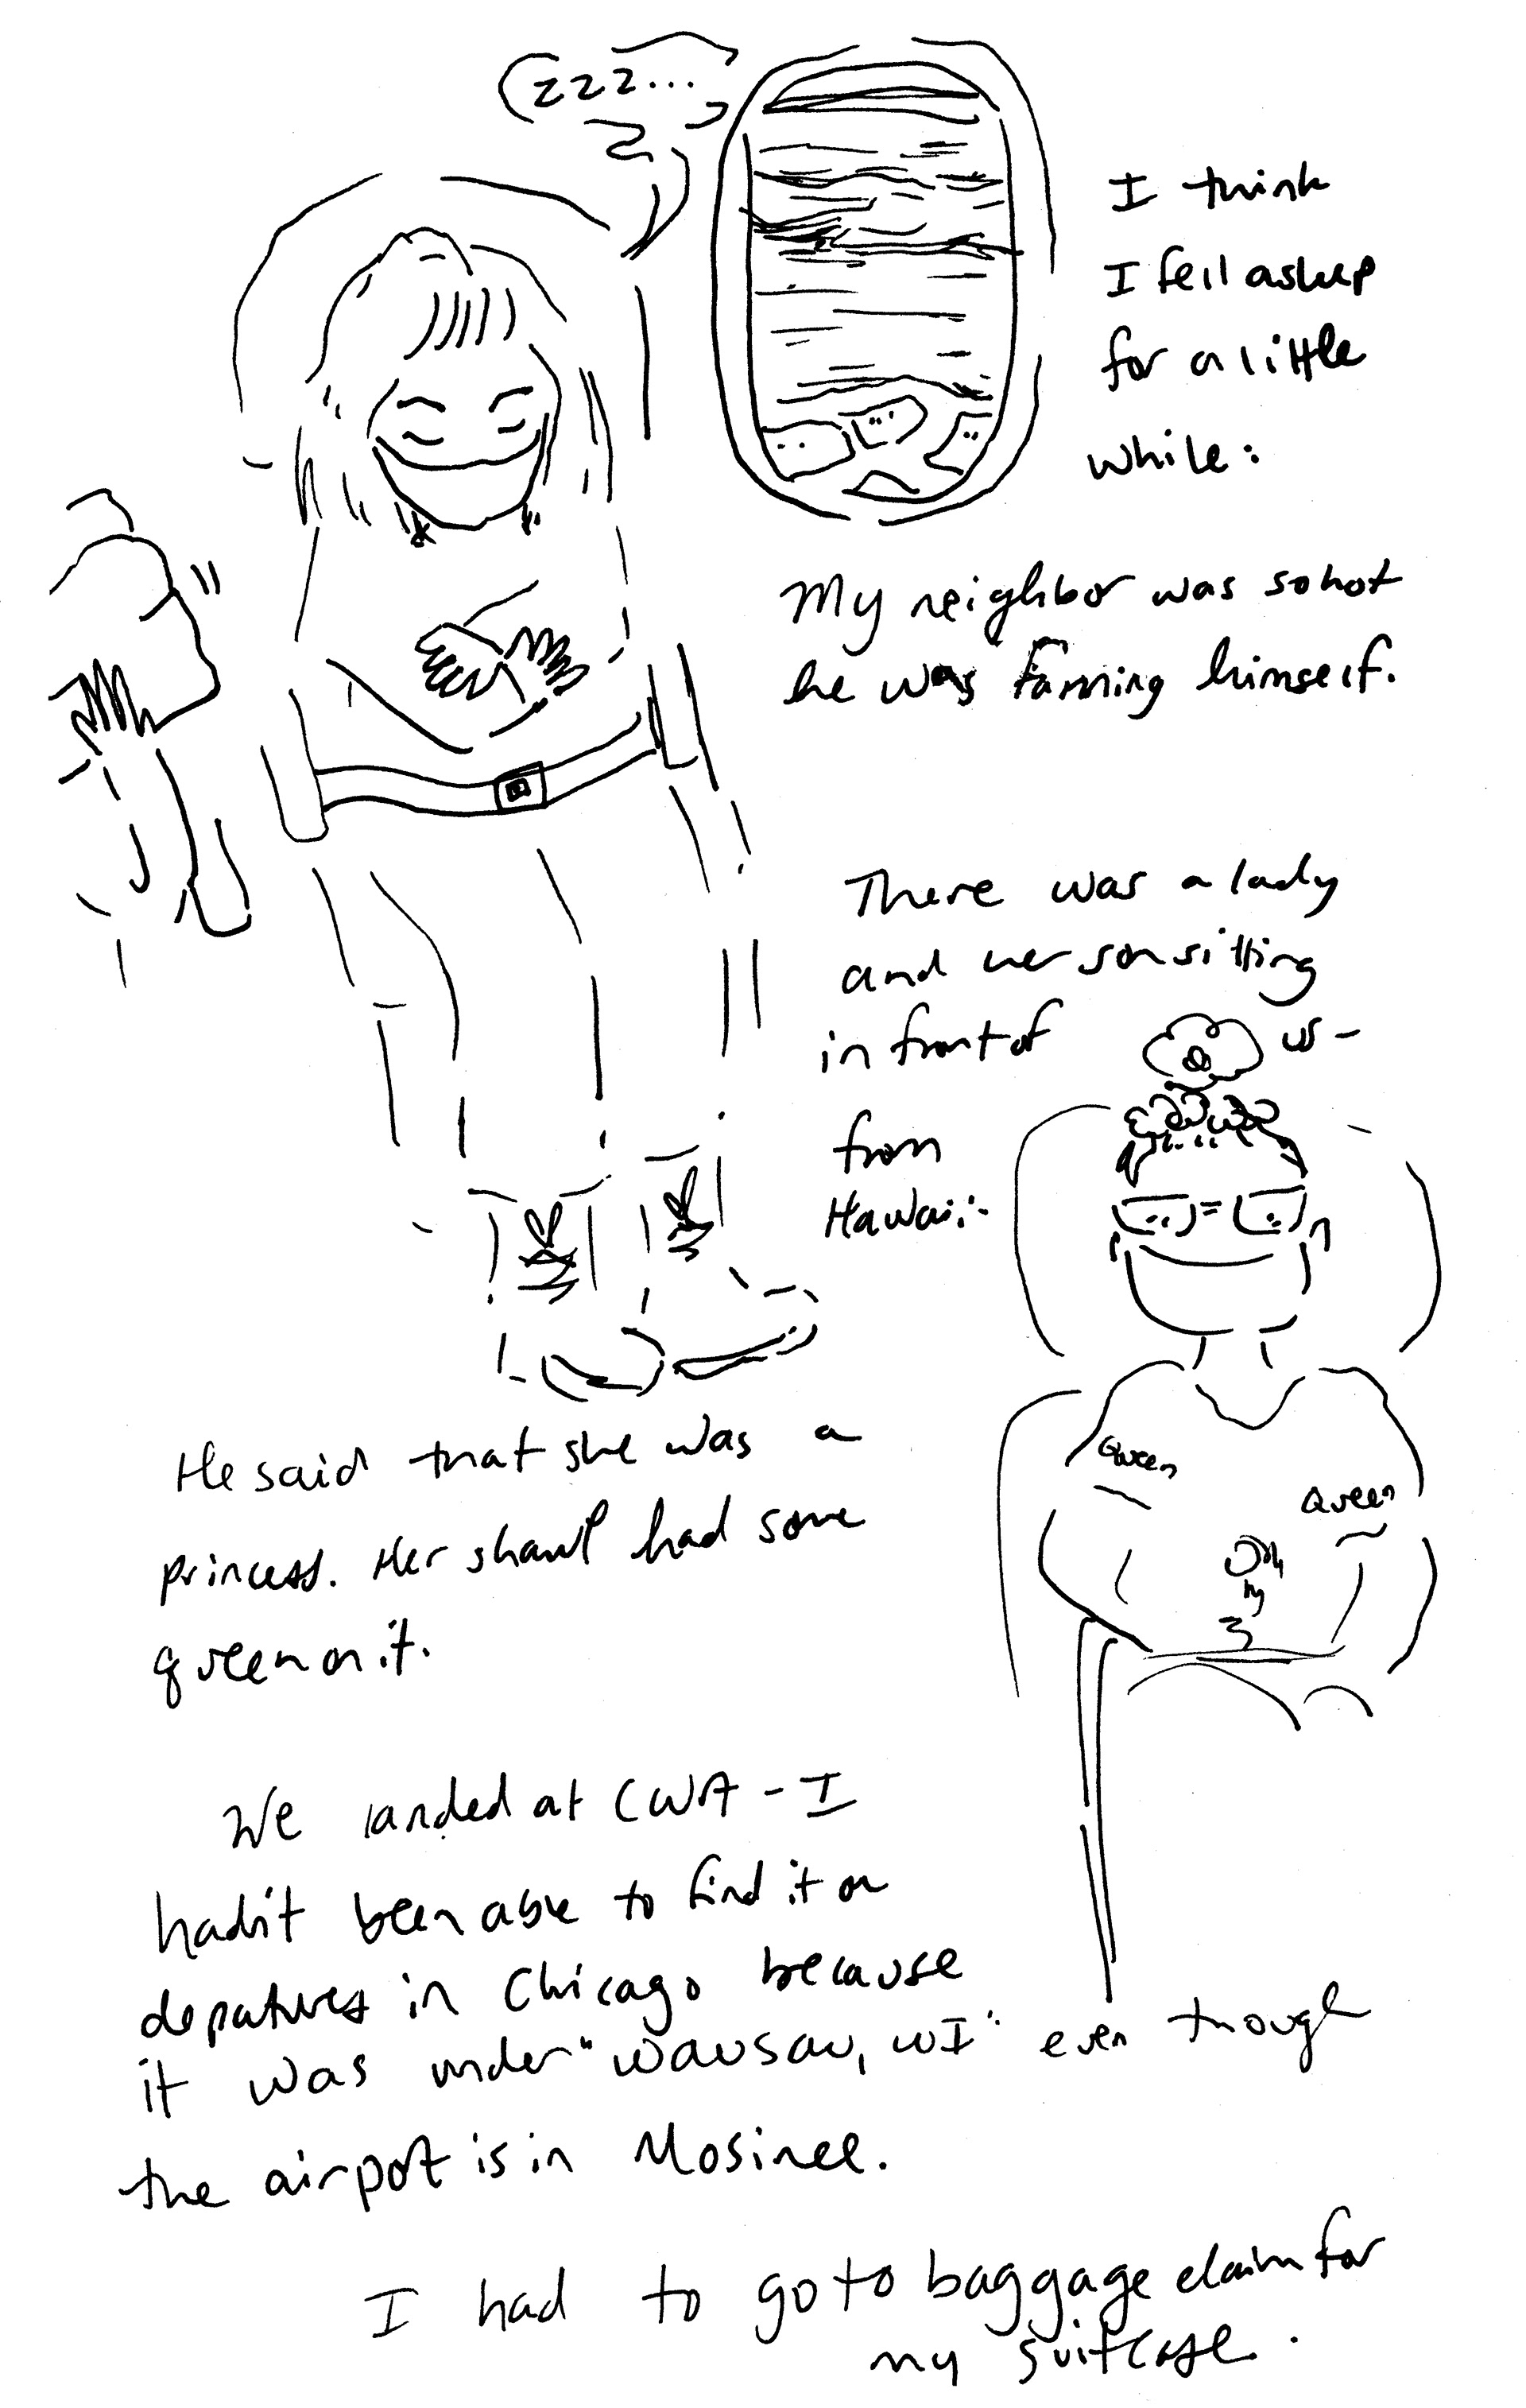 zzz...
I think
I fell asleep
for a little
while:
My neighbor was so hot
he was fanning himself.
There was a lady
and her son sitting
in front of us -
from
Hawaii:-
Queen
Queen
He said that she was a
princess. Her shawl had some
queen on it.
We landed at CWA - I
hadn't been able to find it on
depatures in Chicago because
it was under "Wausau, WI" even though
the airport is in Mosinee.
I had to go to baggage claim for
my suitcase.